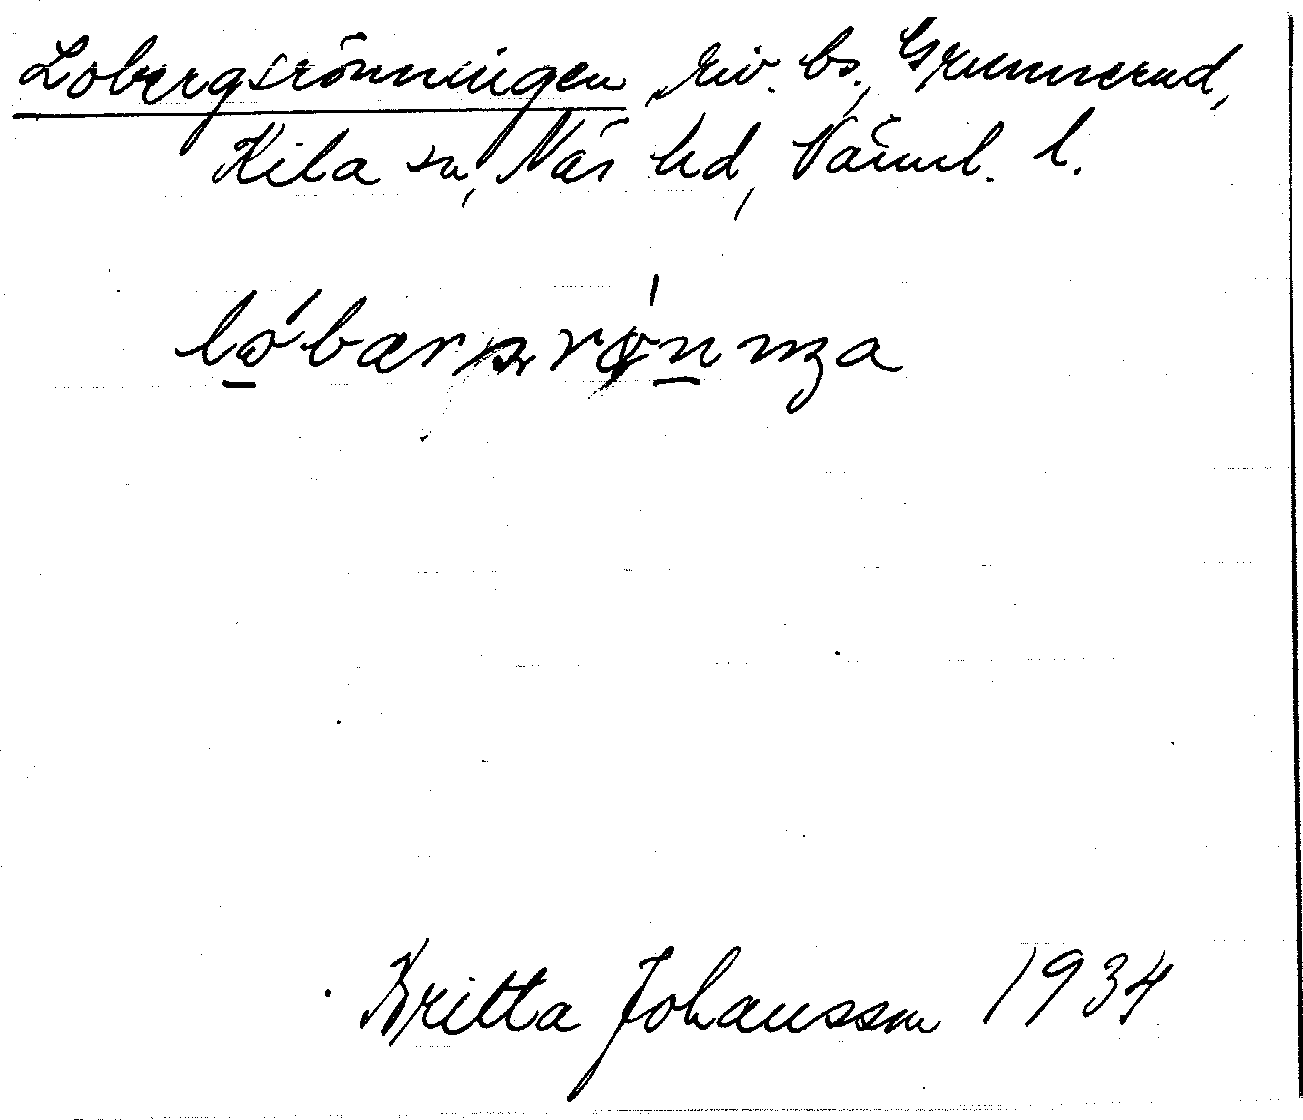 Lobergsrönningen, riv. bs., Grunnerud,
Kila sn, Näs hd, Värml. l.
Britta Johansson 1934